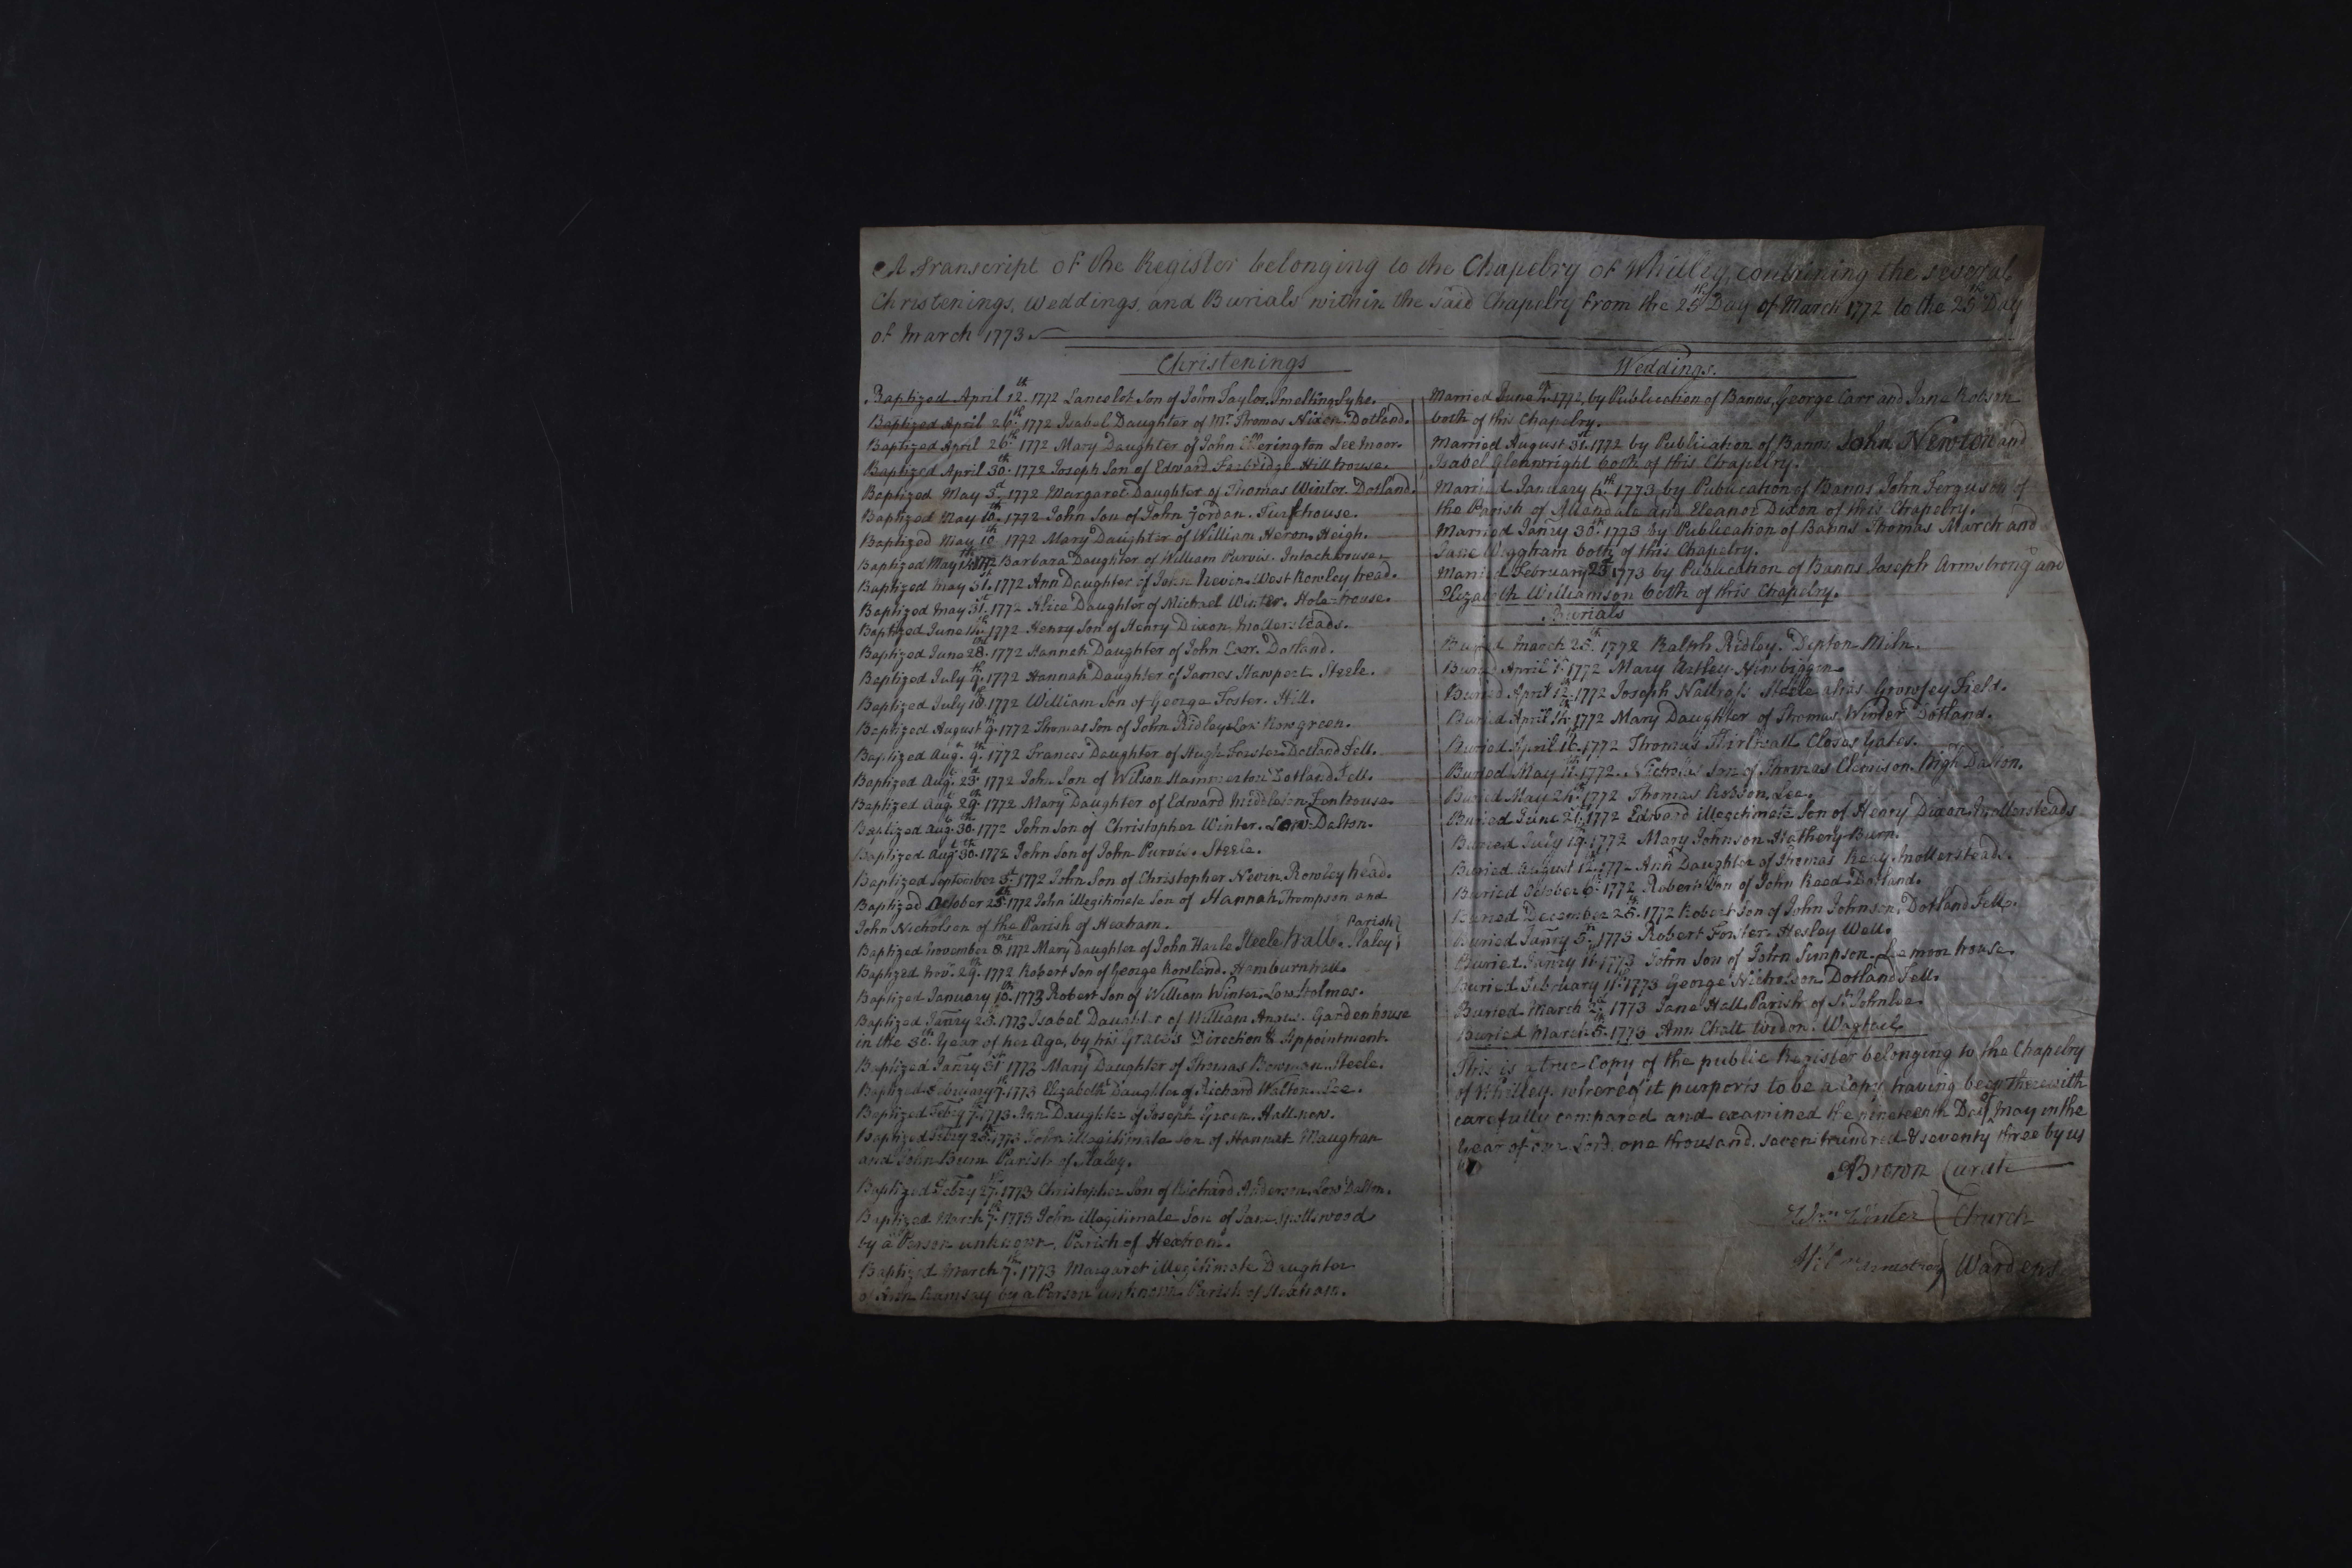 A Transcript of the Register belonging to the Chapelry of Whitley, containing the several
Christenings, Weddings, and Burials within the said Chapelry from the 25th Day of March 1772 to the 25th Day
of March 1773.
Christenings
Baptized April 12th. 1772 Lancelot Son of John Taylor. Smelting Syke.
Baptized April 26th. 1772 Isabel Daughter of Mr. Thomas Nixon. Dotland.
Baptized April 26th. 1772 Mary Daughter of John Etherington Leemoor.
Baptized April 30th. 1772 Joseph Son of Edward Farbridge Hillhouse.
Baptized May 3d. 1772 Margaret Daughter of Thomas Winter. Dotland.
Baptized May 10th. 1772 John Son of John Jordan. Turfhouse.
Baptized May 10 1772 Mary Daughter of William Heron. Heigh.
Baptized May 1772 Barbara Daughter of William Purvis. Intackhouse.
Baptized May 31st. 1772 Ann Daughter of John Nevin. West Rowley head.
Baptized May 31st. 1772 Alice Daughter of Michael Winter. Hole-house.
Baptized June 14th. 1772 Henry Son of Henry Dixon. Mollersteads.
Baptized June 28. 1772 Hannah Daughter of John Carr. Dotland.
Baptized July 9th. 1772 Hannah Daughter of James Stawpert Steele.
Baptized July 18th. 1772 William Son of George Foster. Hill.
Baptized August 9th. 1772 Thomas Son of John Ridley Low Rawgreen.
Baptized Augt. 9th. 1772 Frances Daughter of Hugh Forster Dotland Fell.
Baptized Augt. 23d. 1772 John Son of Wilson Hammerton Dotland Fell.
Baptized Augt. 29th. 1772 Mary Daughter of Edward Middleton Fenhouse.
Baptized Augt. 30th. 1772 John Son of Christopher Winter. Low-Dalton.
Baptized Augt. 30th. 1772 John Son of John Purvis. Steele.
Baptized September 3d. 1772 John Son of Christopher Nevin Rowley head.
Baptized October 25th. 1772 John illegitimate Son of Hannah Thompson and
John Nicholson of the Parish of Hexham.
Parish
Baptized November 8. 1772 Mary Daughter of John Harle Steele hall. Slaley
Baptized Novr. 29th. 1772 Robert Son of George Rowland. Hamburnhall.
Baptized January 10th. 1773 Robert Son of William Winter. Low holmes.
Baptized Janry 23. 1773 Isabel Daughter of William Angus. Gardenhouse
in the Year of her Age, by his Grace's Direction & Appointment.
Baptized Janry 31st 1773 Mary Daughter of Thomas Bowman. Steele.
Baptized February 7th. 1773 Elizabeth Daughter of Richard Walton. Lee.
Baptized Febry 7th. 1773 Ann Daughter of Joseph Green. Hallnow.
Baptized Febry 25th. 1773 John illegitimate Son of Hannah Maughan
and John Parish of Slaley.
Baptized Febry 27th. 1773 Christopher Son of Richard Anderson. Low Dalton.
Baptized March 7th. 1773 John illegitimate Son of Jane Spottswood
by a Person unknown, Parish of Hexham.
Baptized March 7th. 1773 Margaret illegitimate Daughter
of Ann Ramsay by a Person unknown Parish of Hexham.
Weddings.
Married June 1772, by Publication of Banns, George Carr and Jane Robson
both of this Chapelry.
Married August 31st. 1772 by Publication of Banns John Newton and
Isabel Glenwright both of this Chapelry.
Married January 4th. 1773 by Publication of Banns John Ferguson of
the Parish of Allendale and Eleanor Dixon of this Chapelry.
Married Janry 30th. 1773 by Publication of Banns Thomas March and
Jane Wiggham both of this Chapelry.
Married February 23d. 1773 by Publication of Banns Joseph Armstrong and
Elizabeth Williamson both of this Chapelry.
Burials
Buried March 25th. 1772 Ralph Ridley. Dipton-Miln.
Buried April 1772 Mary Newbiggen.
Buried April 12th. 1772 Joseph Nattrass Steele alias Growsey Field.
Buried April 14th. 1772 Mary Daughter of Thomas Winter Dotland.
Buried April 16th. 1772 Thomas Thirlwall Closas Yates.
Buried May 11th. 1772. Nicholas Son of Thomas Clemison. High Dalton.
Buried May 24th. 1772 Thomas Robson. Lee.
Buried June 21st. 1772 Edward illegitimate Son of Henry Dixon. Mollersteads
Buried July 19th. 1772 Mary Johnson Hathery-Burn.
Buried August 12th. 1772 Ann Daughter of Thomas Reay. Mollersteads.
Buried October 6th. 1772 Robert Son of John Reed. Dotland.
Buried December 25th. 1772 Robert Son of John Johnson. Dotland Fell.
Buried Janry 5th. 1773 Robert Forster. Hesley Well.
Buried Janry 11th. 1773 John Son of John Simpson. Leemoor house.
Buried February 11th. 1773 George Nicholson Dotland Fell.
Buried March 2d. 1773 Jane Hall. Parish of St. John Lee.
Buried March 5th. 1773 Ann Chatt Widow. Wagtail.
This is a true Copy of the public Register belonging to the Chapelry
of Whitley. whereof it purports to be a Copy having been therewith
carefully compared and examined the nineteenth Day of May in the
Year of our Lord, one thousand, seven hundred & seventy three by us
ABrown Curate
Wm Winter Church
Wardens